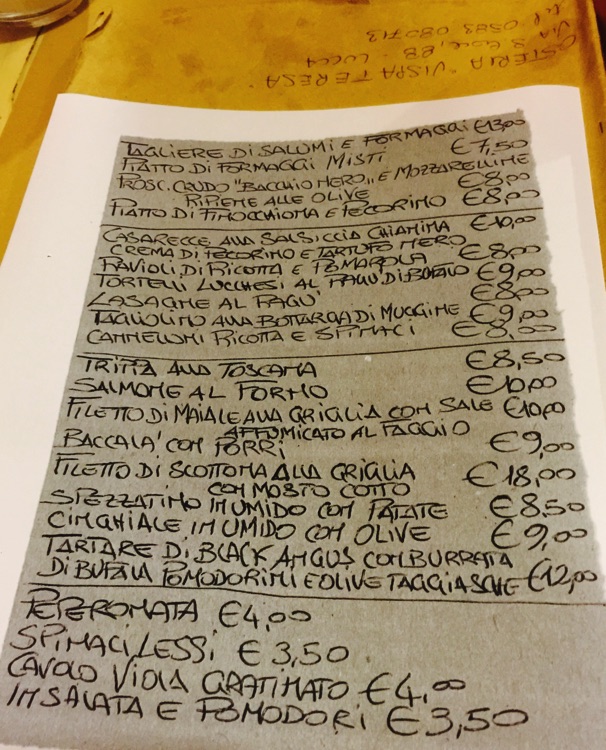 OSTERIA "VISPA TERESA"
VIA S. LUCCA
TEL 0583 080713
TAGLIERE DI SALUMI E FORMAGGI €13,00
PIATTO DI FORMAGGI MISTI €7,50
PROSC. CRUDO "BACCHIO NERO,, E MOZZARELLINE
RIPIENE ALLE OLIVE €8,00
PIATTO DI FINOCCHIONA E PECORINO €8,00
CASARECCE ALLA SALSICCIA CHIANINA €10,00
CREMA DI PECORINO E TARTUFO NERO
RAVIOLI DI RICOTTA E POMAROLA €8,00
TORTELLI LUCCHESI AL RAGU' DI BUFALO €9,00
LASAGNE AL RAGU' €8,00
TAGLIOLINO ALLA BOTTARGA DI MUGGINE €9,00
CANNELLONI RICOTTA E SPINACI €8,00
TRIPPA ALLA TOSCANA €8,50
SALMONE AL FORNO €10,00
FILETTO DI MAIALE ALLA GRIGLIA CON SALE €10,00
AFFUMICATO AL FAGGIO
BACCALA' CON PORRI €9,00
FILETTO DI SCOTTONA ALLA GRIGLIA €18,00
CON MOSTO COTTO
SPEZZATINO IN UMIDO CON PATATE €8.50
CINGHIALE IN UMIDO CON OLIVE €9,00
TARTARE DI BLACK ANGUS CON BURRATA
DI BUFALA POMODORINI E OLIVE TAGGIASCHE €12,00
PEPERONATA €4,00
SPINACI LESSI €3,50
CAVOLO VIOLA GRATINATO €4,00
INSALATA E POMODORI €3,50